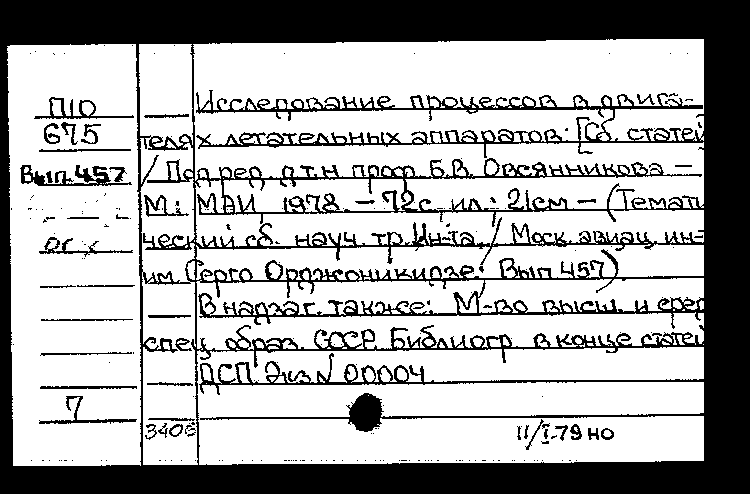 П10
675
Вып.457
Исследование процессов в двига-
телях летательных аппаратов: [Сб. статей
/ Под ред. д.т.н. проф. Б.В. Овсянникова —
М.: МАИ, 1978. — 72с., ил.: 21см — (Темати
ческий сб. науч. тр. Ин-та / Моск. авиац. ин-
им. Серго Орджоникидзе; Вып 457).
В надзаг. также: М-во высш. и сред
спец. образ. СССР. Библиогр. в конце статей
ДСП. Экз N 00004.
7
3406
11/I-79 но